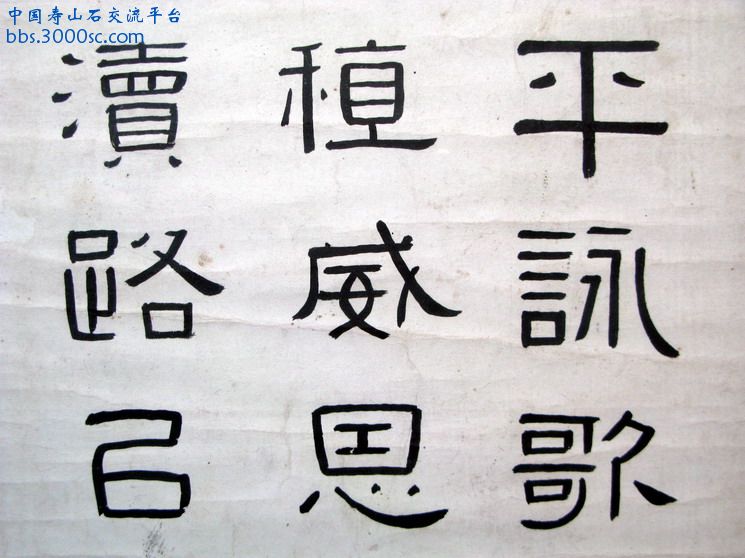 中国寿山石交流平台
bbs.3000sc.com
平詠歌
稙威恩
瀆路㠯